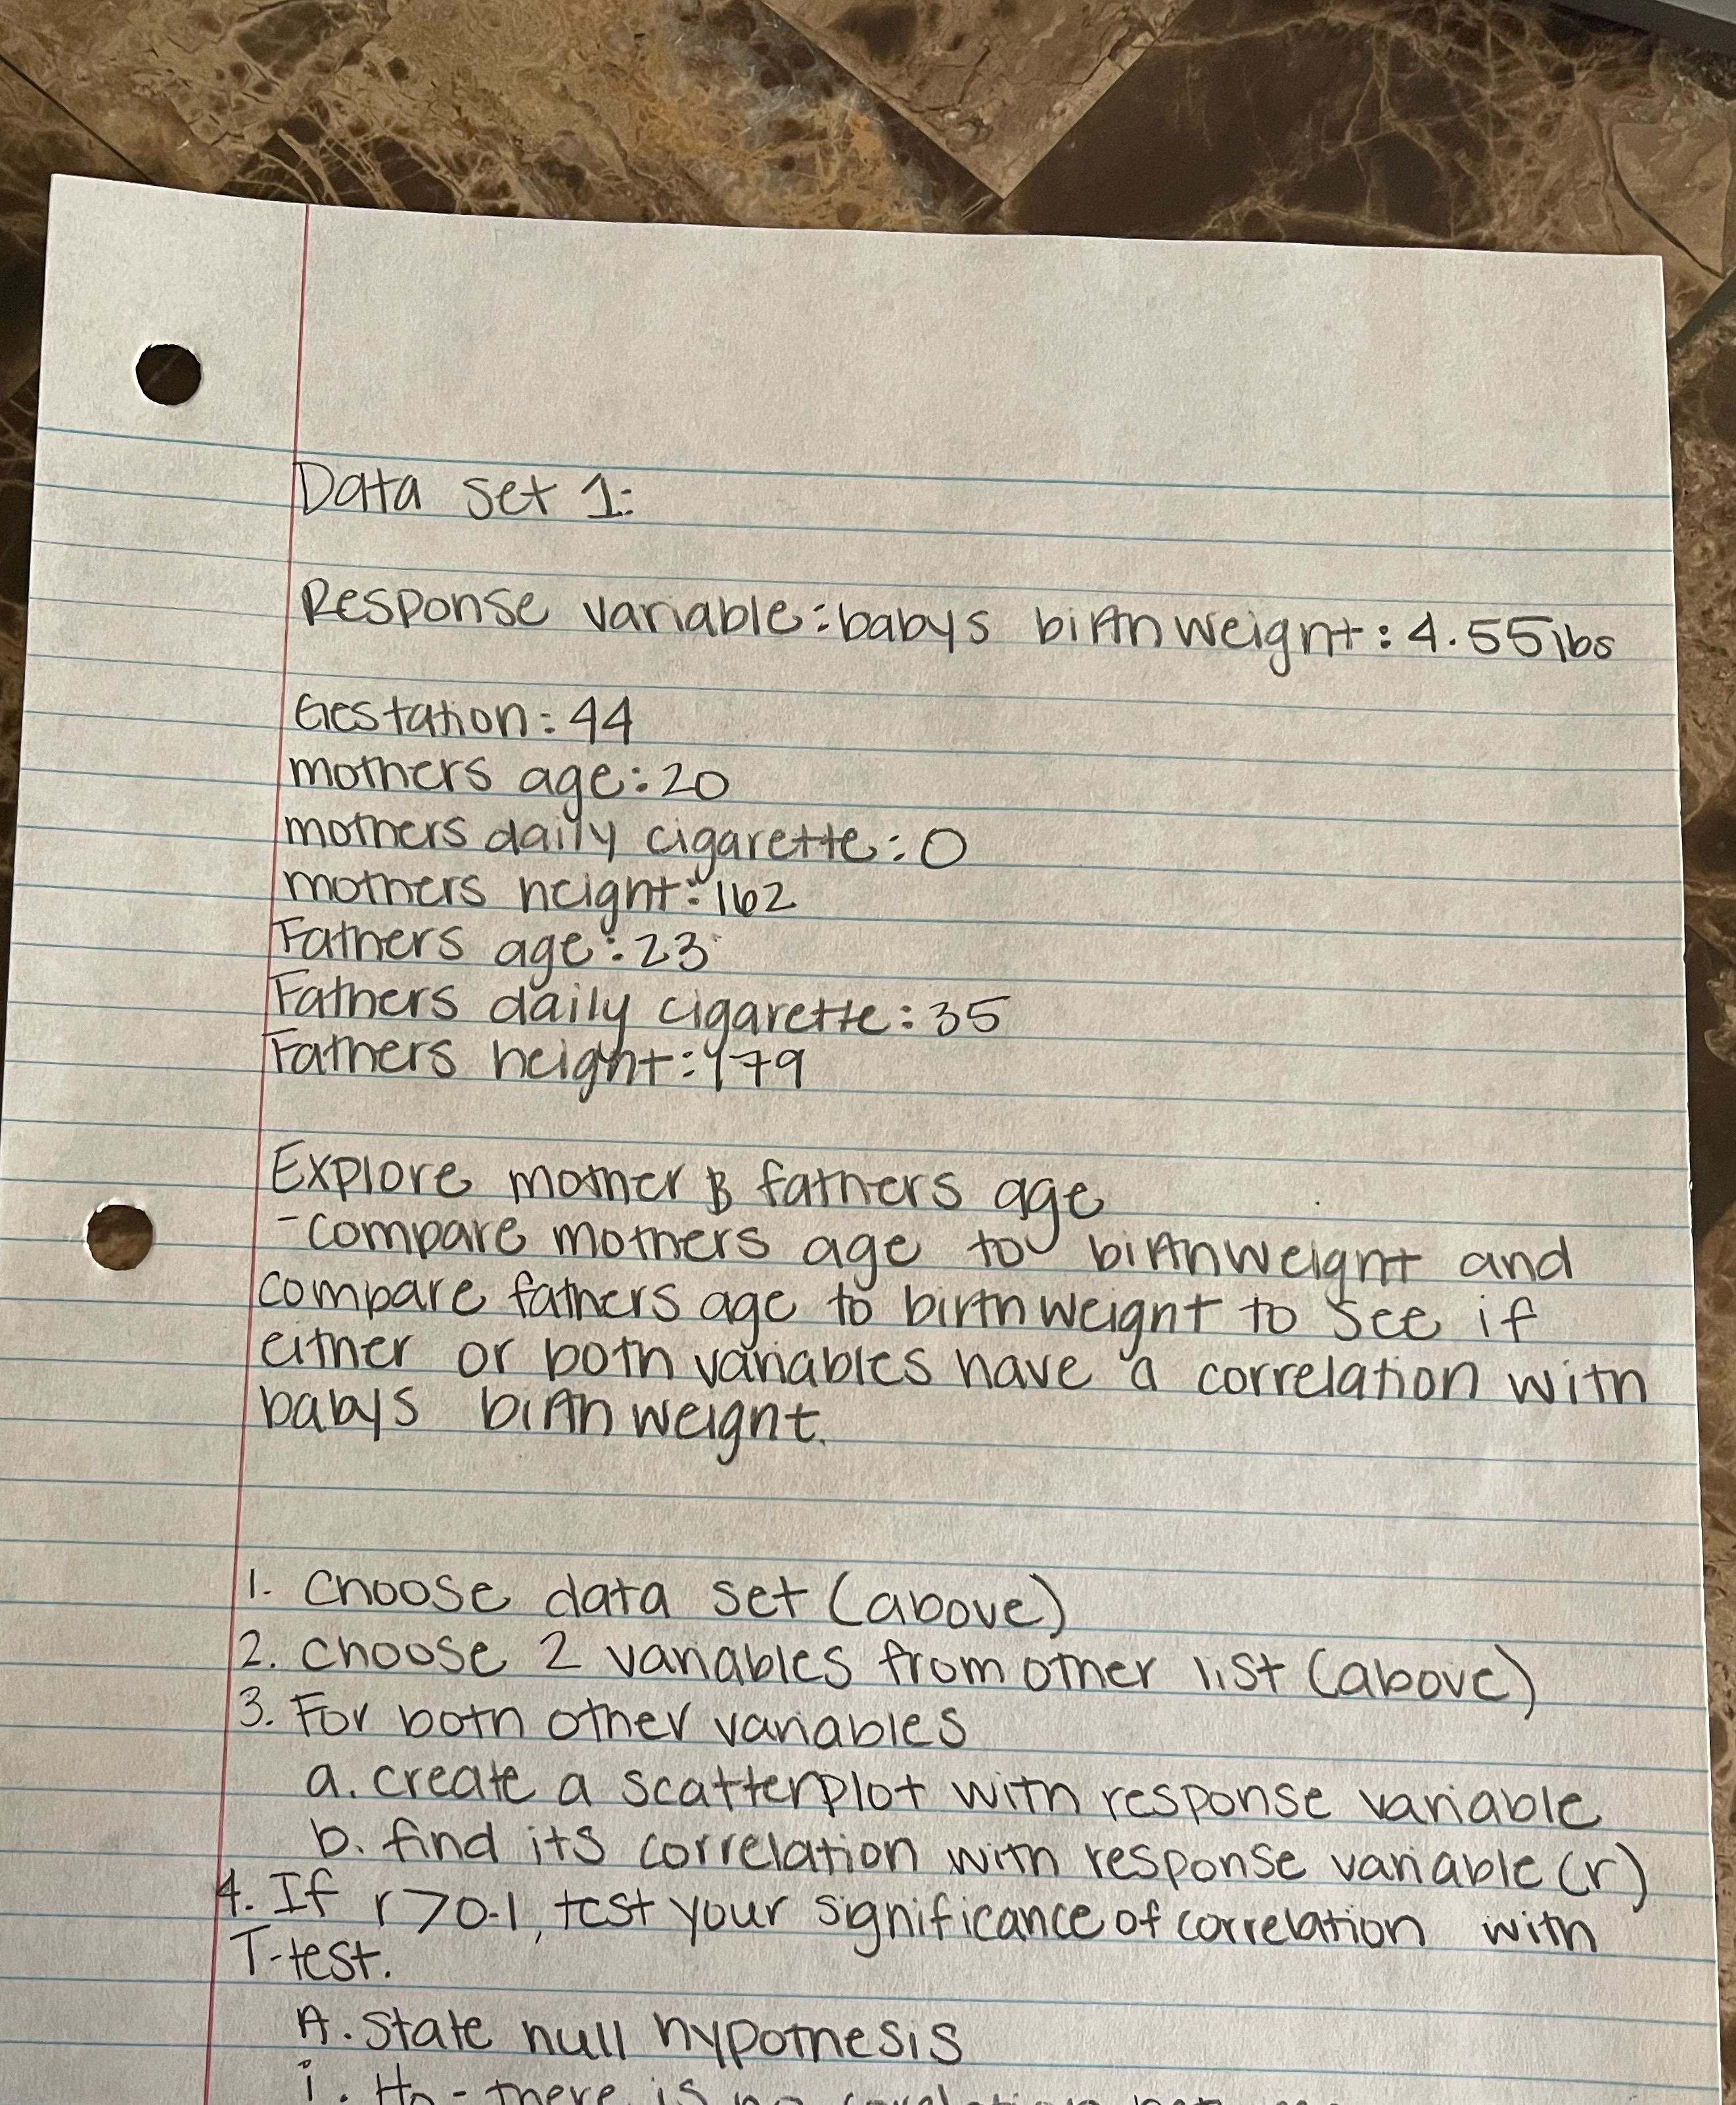 Data set 1:
Response variable: babys birthweight: 4.55lbs
Gestation: 44
mothers age: 20
mothers daily cigarette: 0
mothers height: 162
Fathers age: 23
Fathers daily cigarette: 35
Fathers height: 179
Explore mother & fathers age
- compare mothers age to birthweight and
compare fathers age to birthweight to see if
either or both variables have a correlation with
babys birthweight.
1. Choose data set (above)
2. Choose 2 variables from other list (above)
3. For both other variables
a. create a scatterplot with response variable
b. find its correlation with response variable (r)
4. If r > 0.1, test your significance of correlation with
T-test.
A. State null hypothesis
i. Ho - there is no correlation